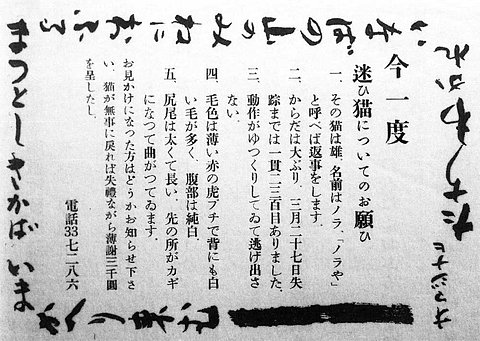 オマジナヒ
たちわかれ
いなばの山のみねにおふる
まつとしきかばいま
かへり来む
今一度
迷ひ猫についてのお願ひ
一、その猫は雄、名前はノラ、「ノラや」
と呼べば返事をします。
二、からだは大ぶり、三月二十七日失
踪までは一貫二三百目ありました。
三、動作がゆつくりしてゐて逃げ出さ
ない。
四、毛色は薄い赤の虎ブチで背にも白
い毛が多く、腹部は純白。
五、尻尾は太くて長い、先の所がカギ
になつて曲がつてゐます。
お見かけになつた方はどうかお知らせ下さ
い、猫が無事に戻れば失禮ながら薄謝三千圓
を呈したし。
電話33七二八六